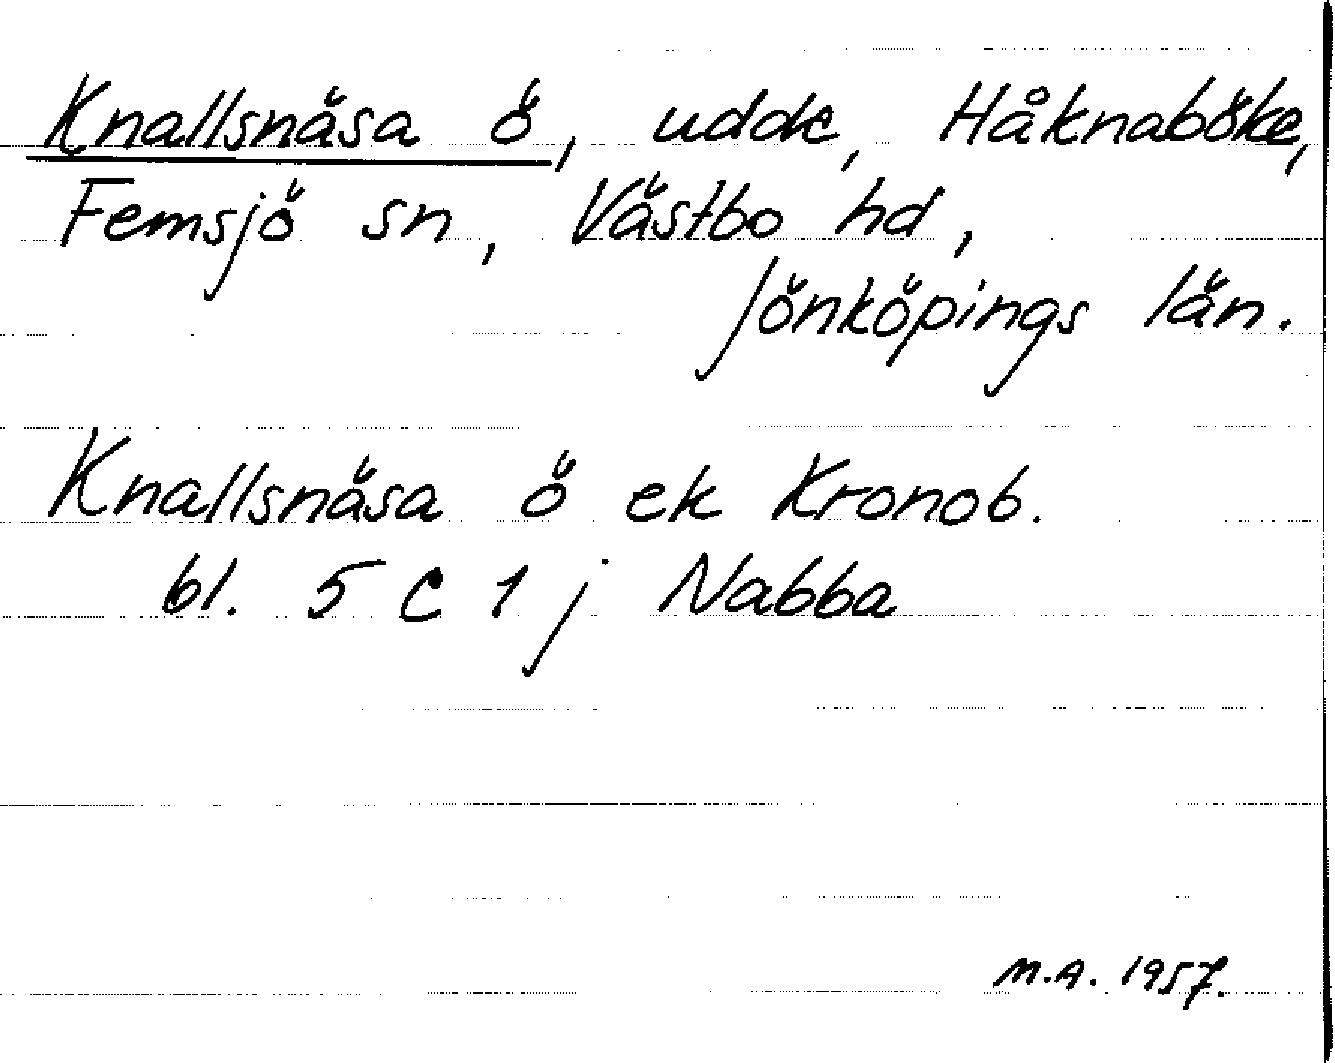 Knallsnäsa ö, udde, Håknaböke,
Femsjö sn, Västbo hd,
Jönköpings län.
Knallsnäsa ö ek Kronob.
bl. 5 C 1 j Nabba
M.A. 1957.